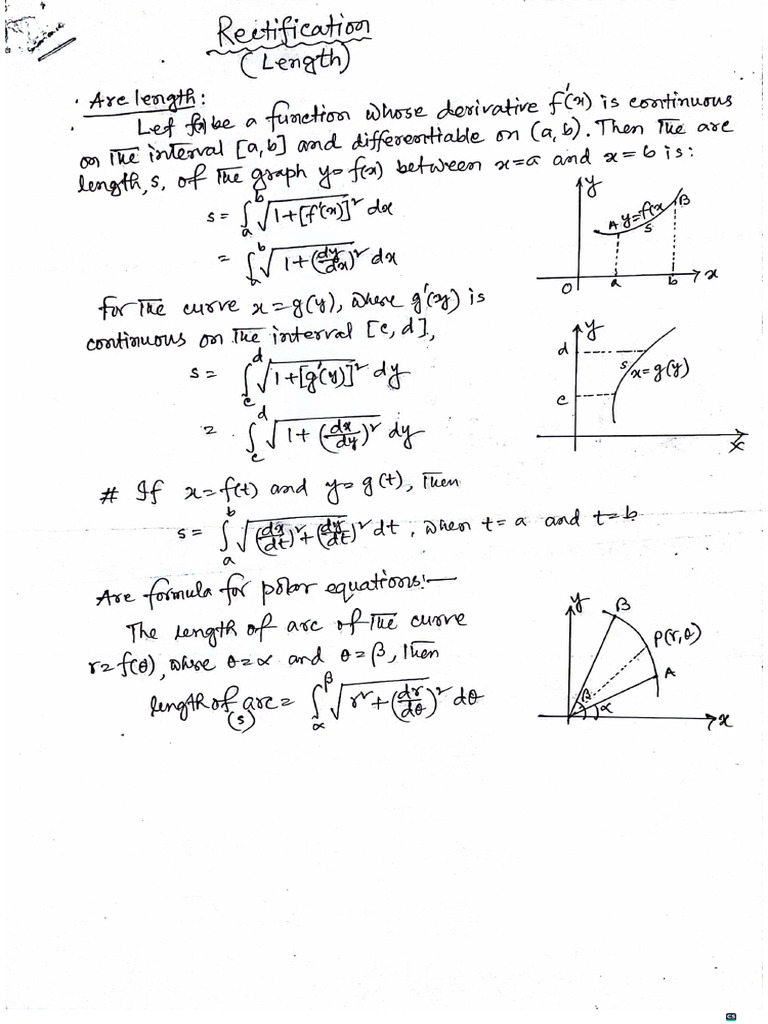 Rectification
(Length)
• Arc length:
• Let f(x) be a function whose derivative f'(x) is continuous
on the interval [a, b] and differentiable on (a, b). Then the arc
length, s, of the graph y = f(x) between x=a and x=b is:
s = ∫_a^b √(1+[f'(x)]²) dx
= ∫_a^b √(1+(dy/dx)²) dx
y
A
y=f(x
B
s
O
a
b
x
For the curve x = g(y), where g'(y) is
continuous on the interval [c, d],
s = ∫_c^d √(1+[g'(y)]²) dy
= ∫_c^d √(1+(dx/dy)²) dy
y
d
s
x=g(y)
c
x
# If x=f(t) and y=g(t), then
s = ∫_a^b √((dx/dt)²+(dy/dt)²) dt, when t=a and t=b.
Arc formula for polar equations:—
The length of arc of the curve
r=f(θ), where θ=α and θ=β, then
length of arc = ∫_α^β √(r²+(dr/dθ)²) dθ
(s)
y
B
P(r,θ)
A
β
α
x
CS